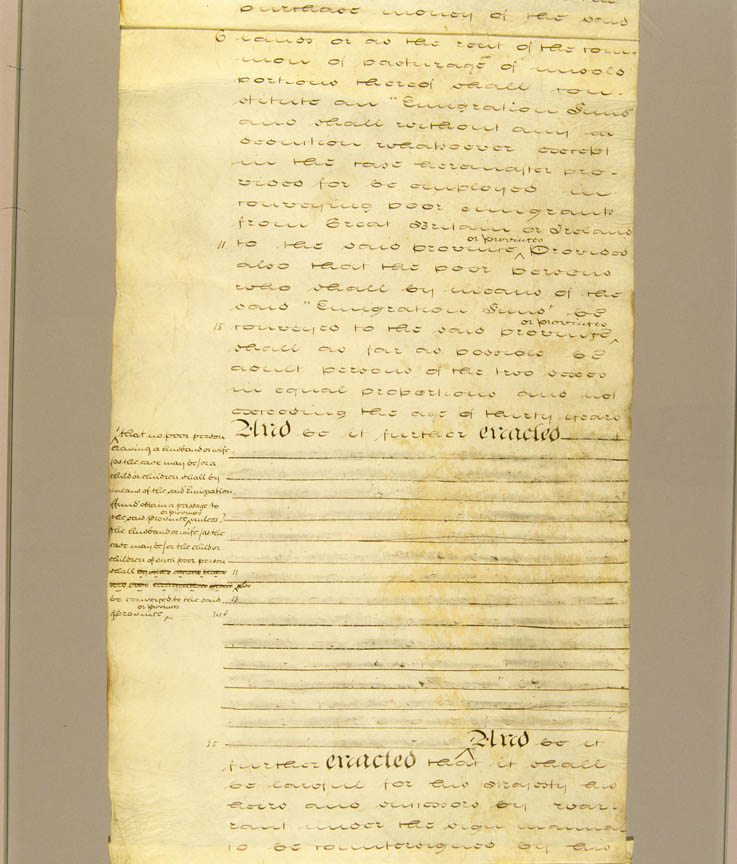 purchase money of the said
6 lands or as the rent of the com-
mon of pasturage of unsold
portions thereof shall con-
stitute an "Emigration Fund"
and shall without any de
duction whatsoever except
in the case hereinafter pro-
vided for be employed in
conveying poor emigrants
from Great Britain or Ireland
or provinces
11 to the said province ^ Provided
also that the poor persons
who shall by means of the
said "Emigration Fund" be
or provinces
15 conveyed to the said province ^
shall as far as possible be
adult persons of the two sexes
in equal proportions and not
exceeding the age of thirty years
And be it further enacted
that no poor person
having a husband or wife
(as the case may be) or a
child or children shall by
means of the said Emigration
Fund obtain a passage to
or provinces
the said province ^ unless
the husband or wife (as the
case may be) or the child or
children of such poor person
shall
also
be conveyed to the said
or provinces
province ^
35 And be it
further enacted that it shall
be lawful for his Majesty his
heirs and successors by war-
rant under the sign manual
to be countersigned by his